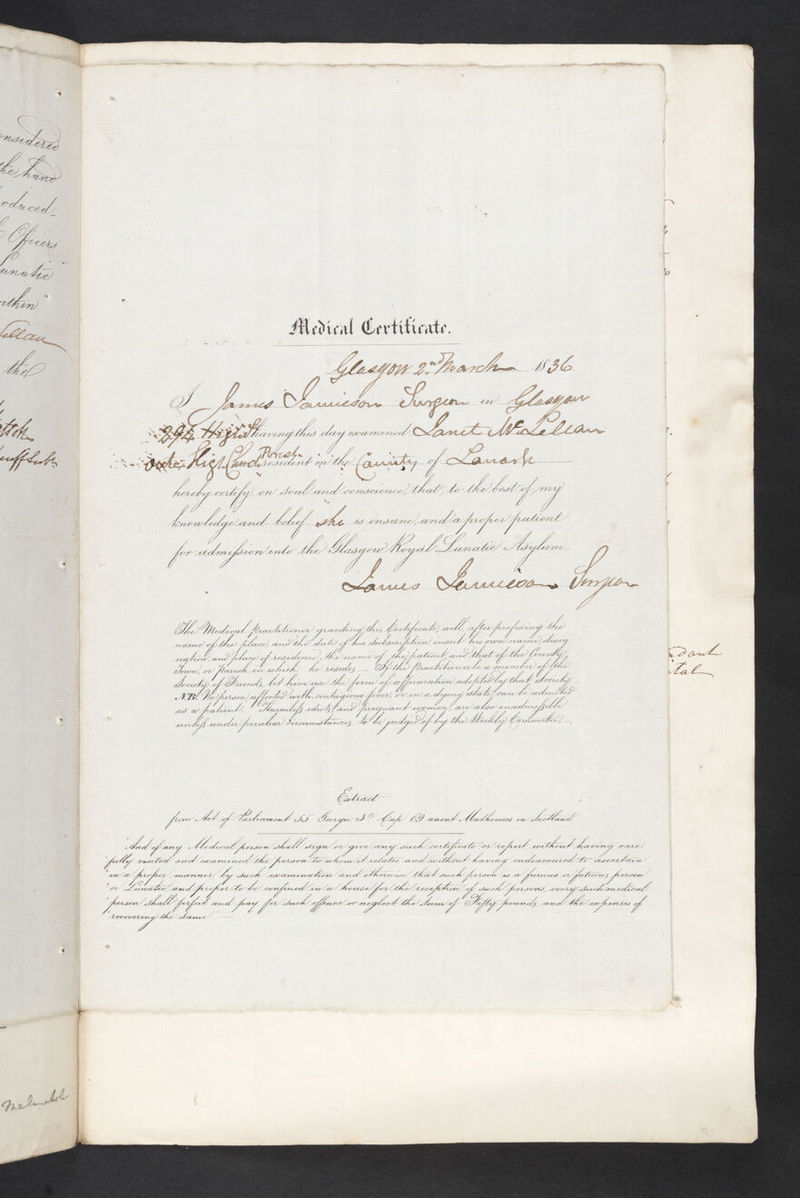 nsidered
the hand
oduced
Officers
unatic
within
ellan
the
Melancholi
Medical Certificate.
Glasgow 2nd March 1836
I James Jamieson Surgeon in Glasgow
294 High St having this day examined Janet McLellan
High Church Parish resident in the County of Lanark
hereby certify, on soul and conscience, that, to the best of my
knowledge and belief she is insane, and a proper patient
for admission into the Glasgow Royal Lunatic Asylum
James Jamieson Surgeon
The Medical practitioner granting this Certificate, will, after prefixing the
name of the place, and the date of his subscription, insert his own name, desig-
nation, and place of residence, the name of the patient, and that of the County,
town, or parish, in which he resides — If the practitioner be a member of the
Society of Friends, let him use the form of affirmation adopted by that Society.
NB. No person, affected with contagious fever, or in a dying state, can be admitted
as a patient. Harmless idiots, and pregnant women, are also inadmissible
unless under peculiar circumstances, to be judged of by the Weekly Committee.
Extract
from Act of Parliament 55 Georgii 3ii Cap 69 anent Madhouses in Scotland
"And if any Medical person shall sign or give any such certificate or report, without having care-
"fully visited and examined the person to whom it relates, and without having endeavoured to ascertain
"in a proper manner, by such examination and otherwise, that such person is a furious or fatuous person
"or Lunatic, and proper to be confined in a house for the reception of such persons, every such medical
"person shall forfeit and pay for such offence or neglect, the sum of Fifty pounds, and the expenses of
"recovering the same"
dant
tal